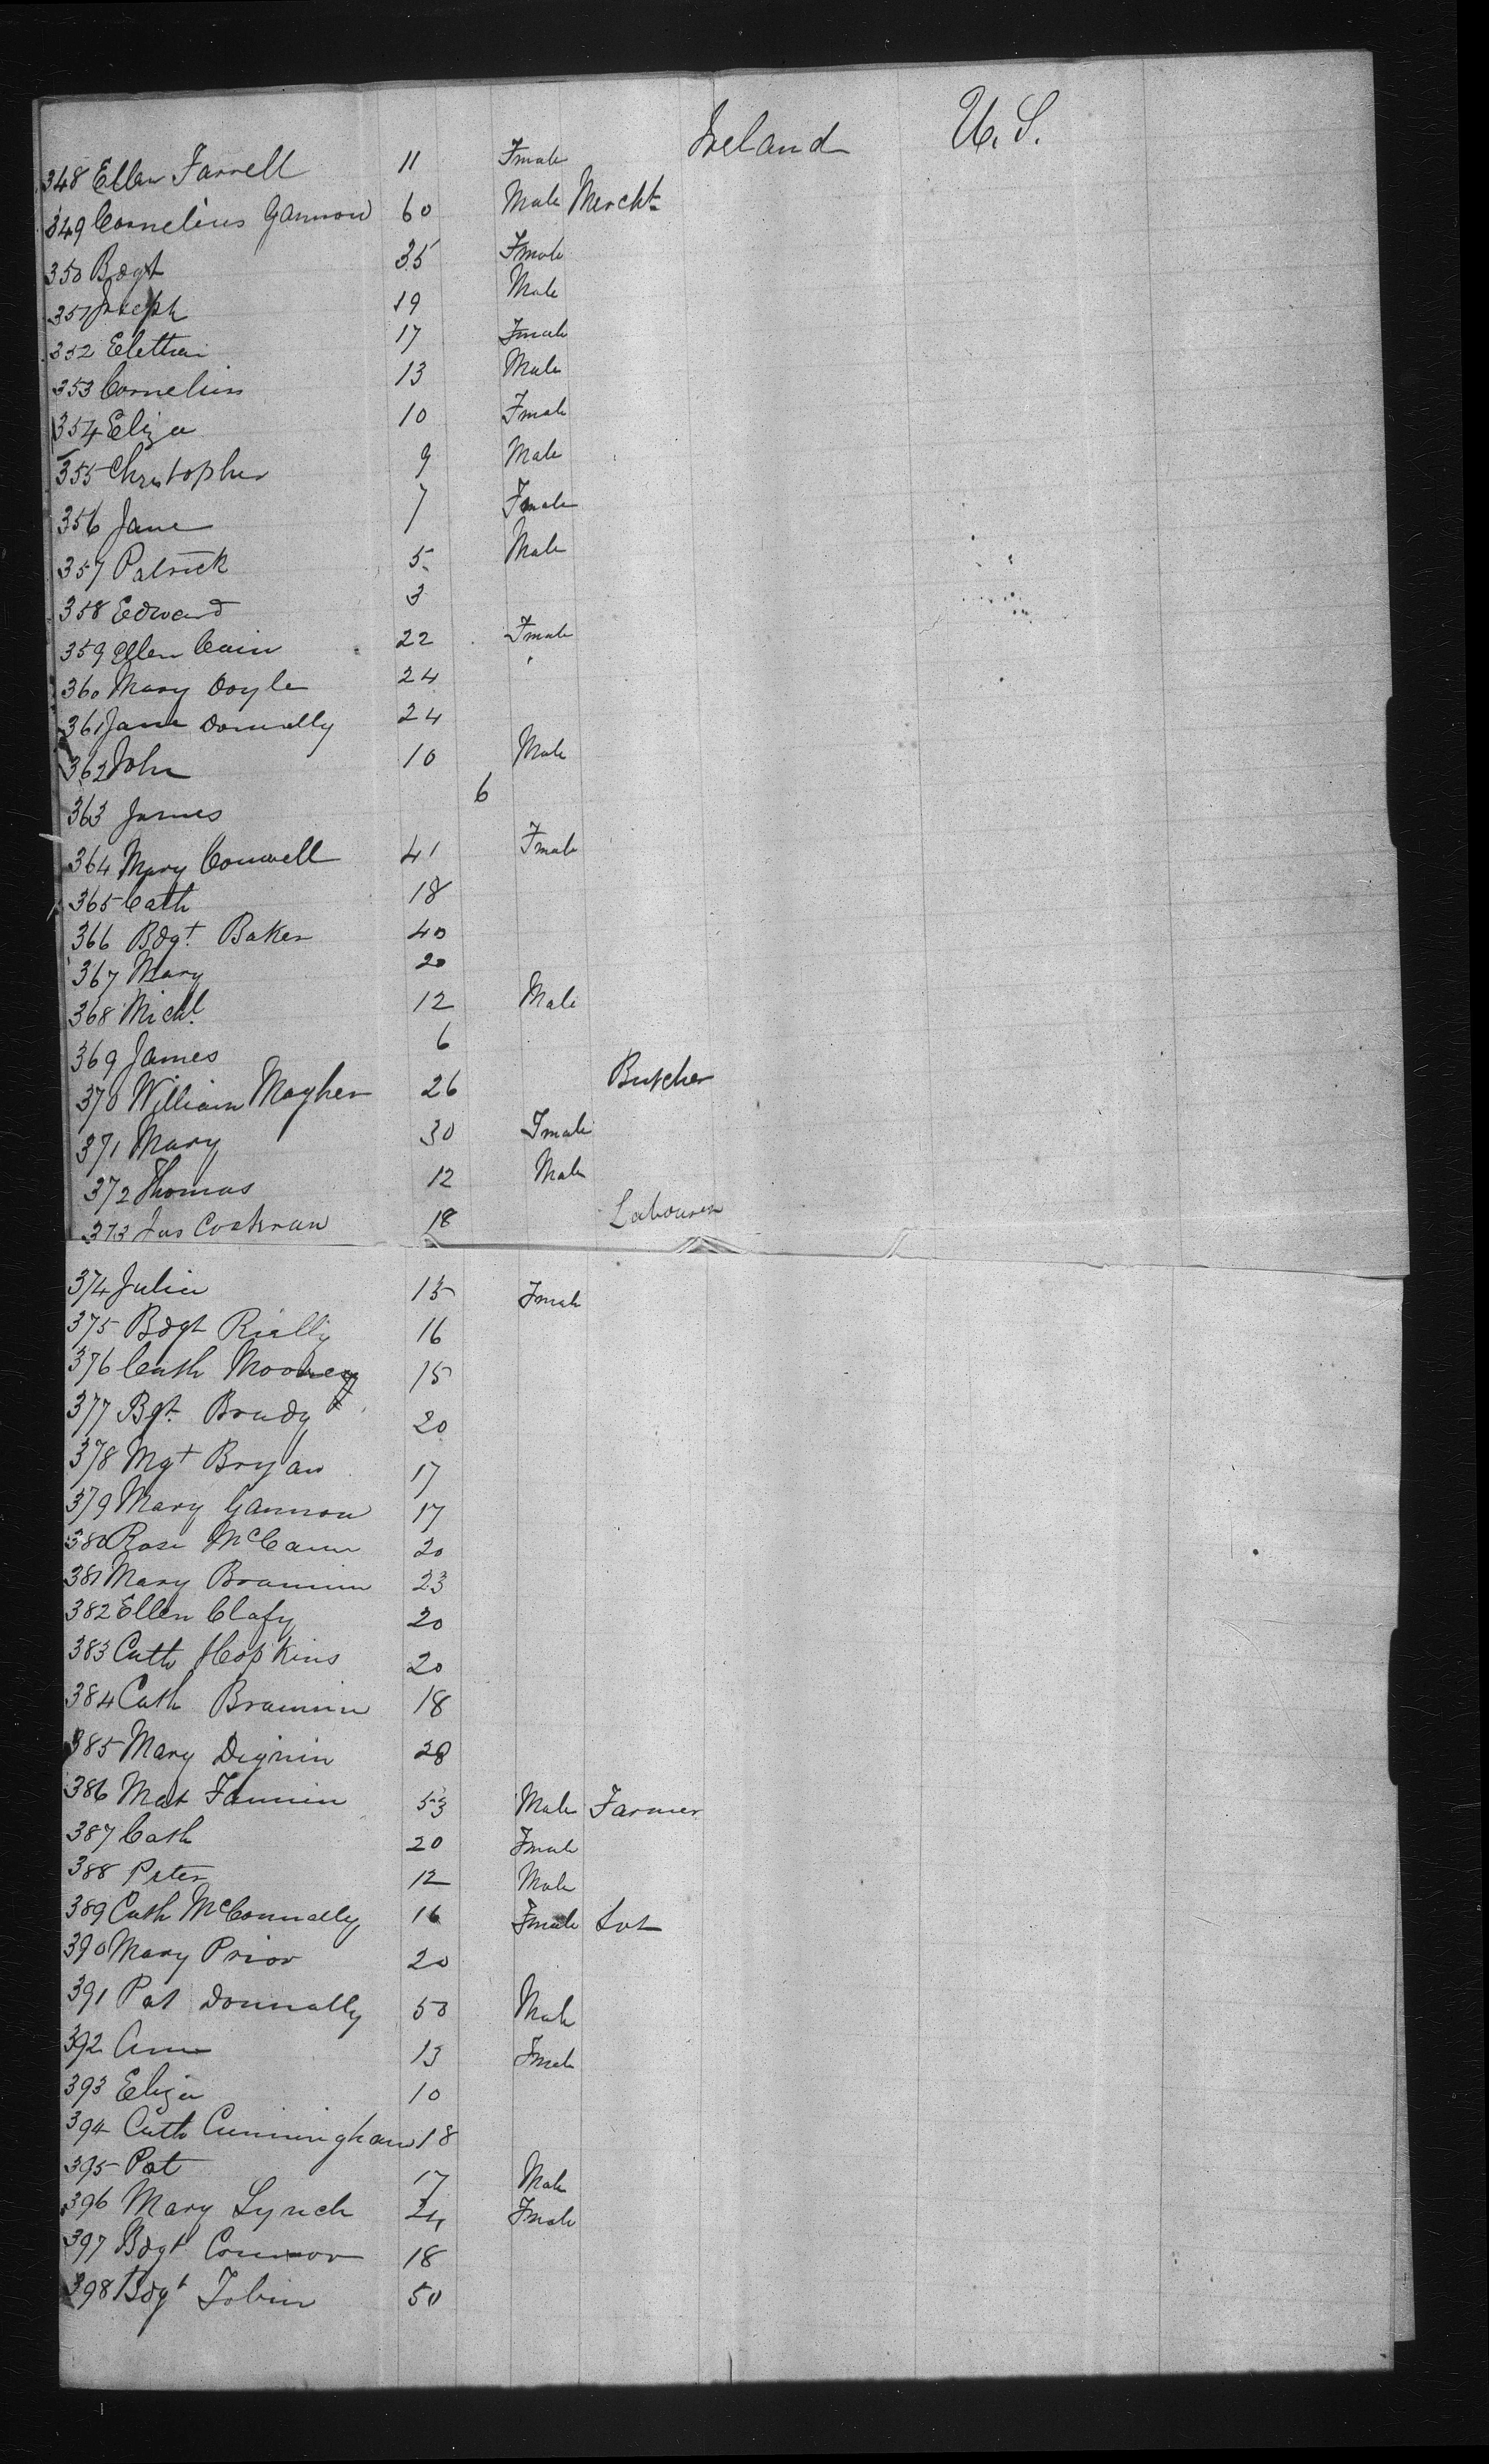 Ireland U.S.
348 Ellen Farrell 11 Fmale
349 Cornelius Gannon 60 Male Mercht
350 Bdgt 35 Fmale
351 Joseph 19 Male
352 17 Fmale
353 Cornelius 13 Male
354 Eliza 10 Fmale
355 Christopher 9 Male
356 Jane 7 Fmale
357 Patrick 5 Male
358 Edward 3
359 Ellen Cain 22 Fmale
360 Mary Doyle 24
361 Jane Donnally 24
362 John 10 Male
363 James 6
364 Mary Conwell 41 Fmale
365 Cath 18
366 Bdgt. Baker 40
367 Mary 20
368 Michl. 12 Male
369 James 6
370 William Magher 26 Butcher
371 Mary 30 Fmale
372 Thomas 12 Male
373 Jas Cockran 18 Labourer
374 Julia 15 Fmale
375 Bdgt Rially 16
376 Cath Mooney 15
377 Bgt. Brady 20
378 Mgt Bryan 17
379 Mary Gannon 17
380 Rose McCann 20
381 Mary Brannin 23
382 Ellen Clafy 20
383 Cath Hopkins 20
384 Cath Brannin 18
385 Mary Dignin 28
386 Mat Fannin 53 Male Farmer
387 Cath 20 Fmale
388 Peter 12 Male
389 Cath McConnally 16 Fmale Svt
390 Mary Prior 20
391 Pat Donnally 50 Male
392 Ann 13 Fmale
393 Eliza 10
394 Cath Cunningham 18
395 Pat 17 Male
396 Mary Lynch 24 Fmale
397 Bdgt Connor 18
398 Bdgt Tobin 50